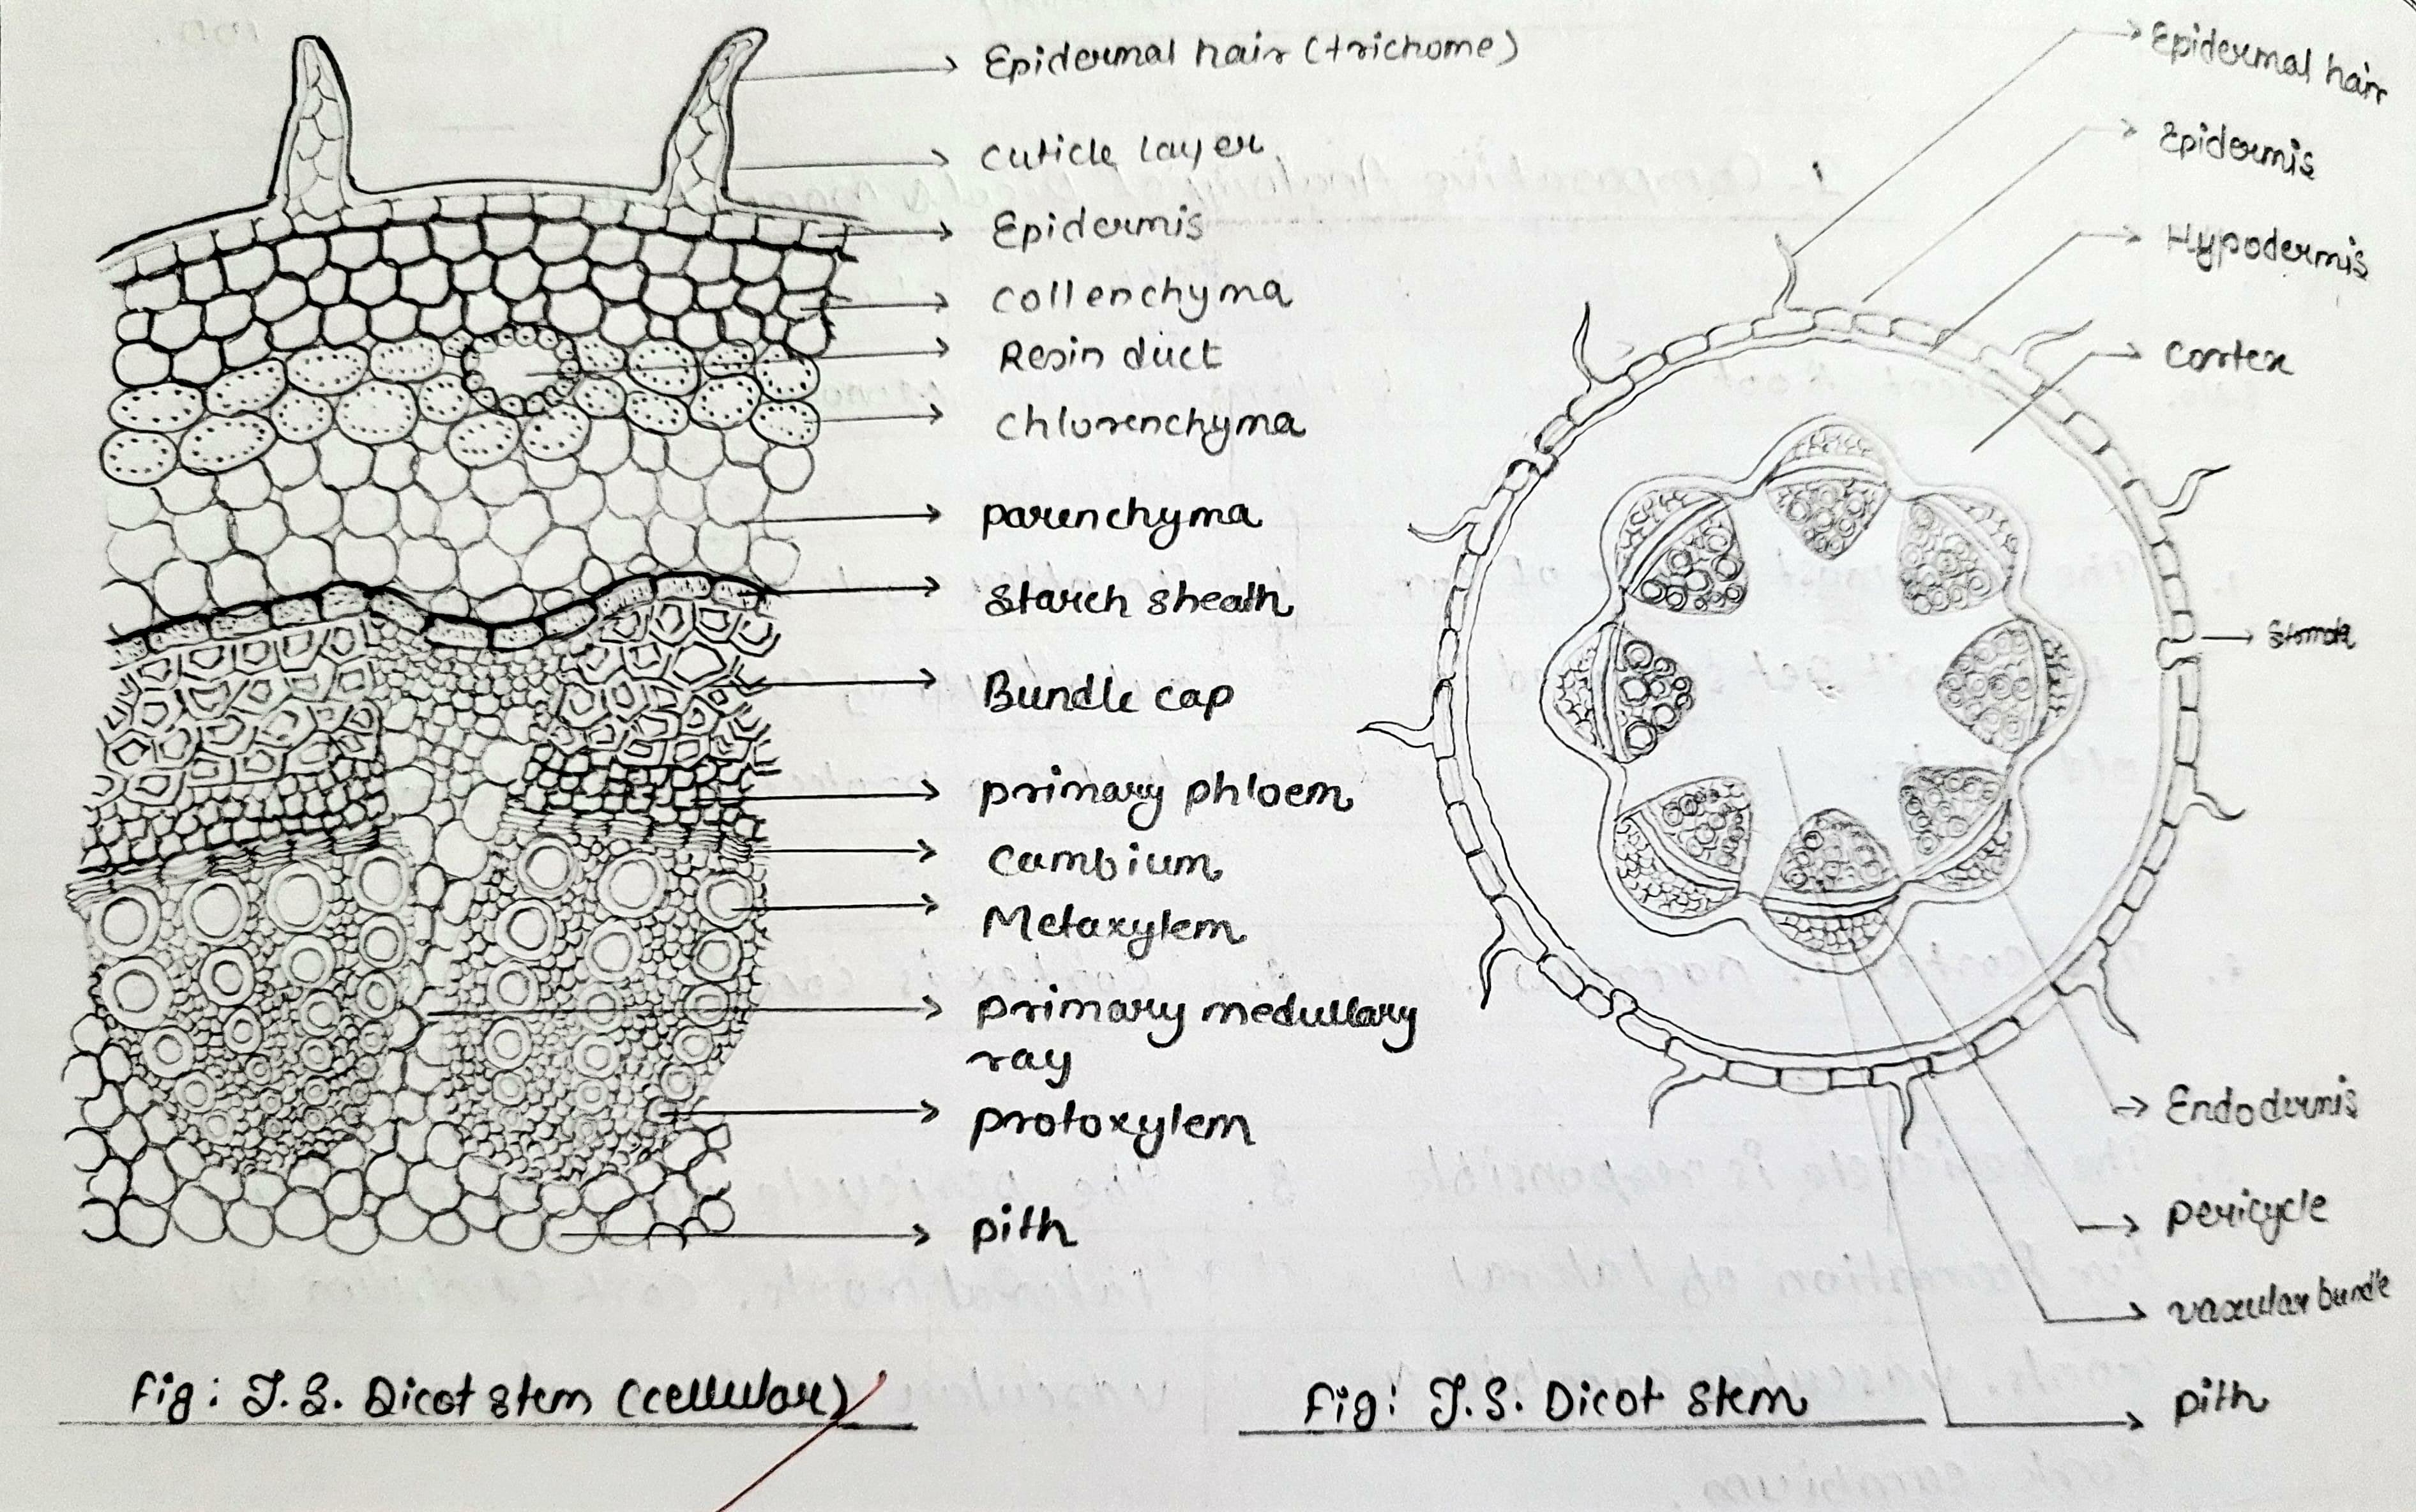 Epidermal hair (trichome)
cuticle layer
Epidermis
collenchyma
Resin duct
chlorenchyma
parenchyma
starch sheath
Bundle cap
primary phloem
cambium
Metaxylem
primary medullary
ray
protoxylem
pith
Fig: T.S. Dicot stem (cellular)
Epidermal hair
Epidermis
Hypodermis
cortex
Endodermis
pericycle
vascular bundle
pith
Fig: T.S. Dicot stem